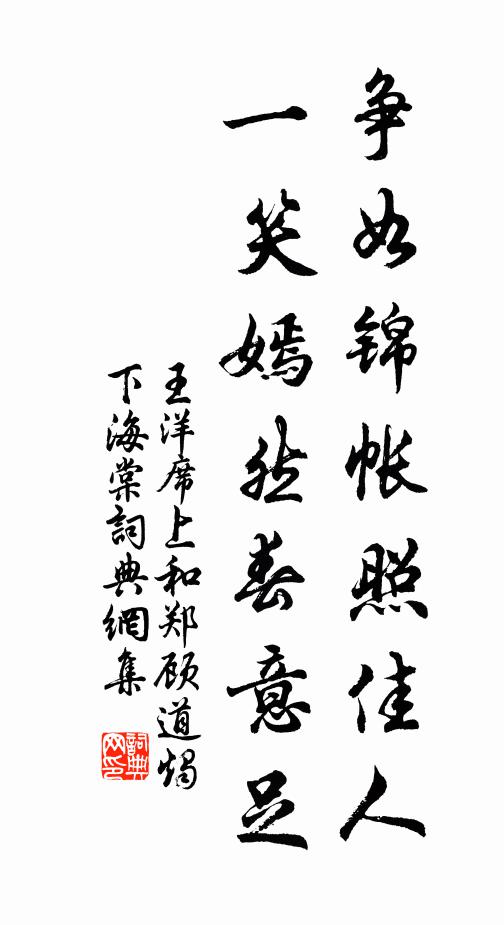 争如锦帐照佳人
一笑嫣然春意足
王洋席上和郑顾道烛
下海棠詞典網集
詞典
网印